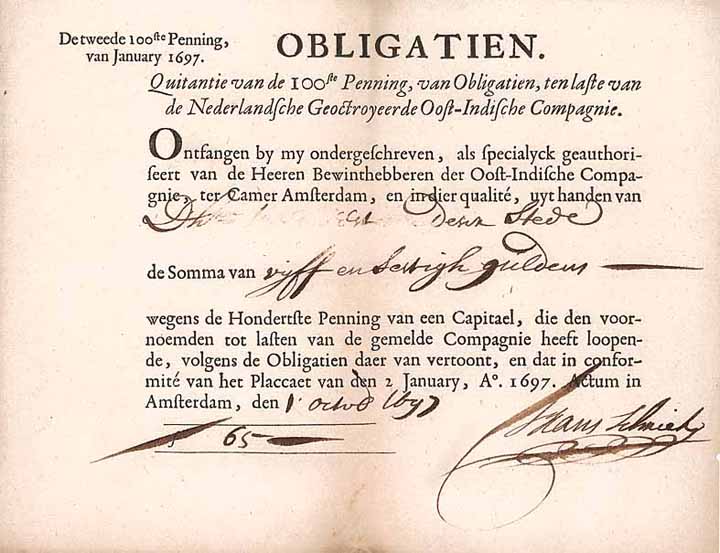 De tweede 100ste Penning,
van January 1697.
OBLIGATIEN.
Quitantie van de 100ste Penning, van Obligatien, ten laste van
de Nederlandsche Geoctroyeerde Oost-Indische Compagnie.
Ontfangen by my ondergeschreven, als specialyck geauthori-
seert van de Heeren Bewinthebberen der Oost-Indische Compa-
gnie, ter Camer Amsterdam, en in dier qualité, uyt handen van
deser Stede
de Somma van vijff en sestigh guldens
wegens de Hondertste Penning van een Capitael, die den voor-
noemden tot lasten van de gemelde Compagnie heeft loopen-
de, volgens de Obligatien daer van vertoont, en dat in confor-
mité van het Placcaet van den 2 January, Ao. 1697. Actum in
Amsterdam, den 1 octob 1697
65